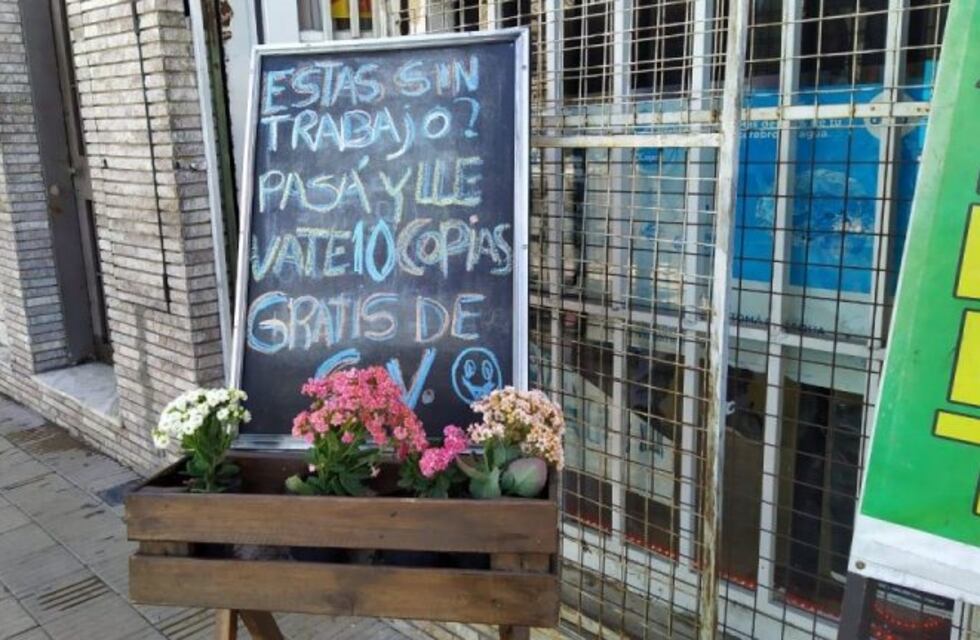 ESTAS SIN
TRABAJO?
PASÁ Y LLE
VATE 10 COPIAS
GRATIS DE
C.V.